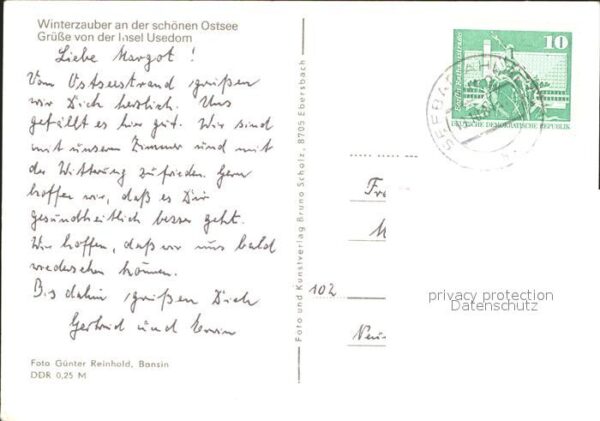 Winterzauber an der schönen Ostsee
Grüße von der Insel Usedom
Liebe Margot!
Vom Ostseestrand grüßen
wir Dich herzlich. Uns
gefällt es hier gut. Wir sind
mit unserem Zimmer und mit
der Witterung zufrieden. Gern
hoffen wir, daß es Dir
gesundheitlich besser geht.
Wir hoffen, daß wir uns bald
wiedersehen können.
Bis dahin grüßen Dich
Gertrud und Erwin
Foto Günter Reinhold, Bansin
DDR 0,25 M
Foto und Kunstverlag Bruno Scholz, 8705 Ebersbach
10
Berlin, Rathausstraße
DEUTSCHE DEMOKRATISCHE REPUBLIK
SEEBAD
102
privacy protection
Datenschutz